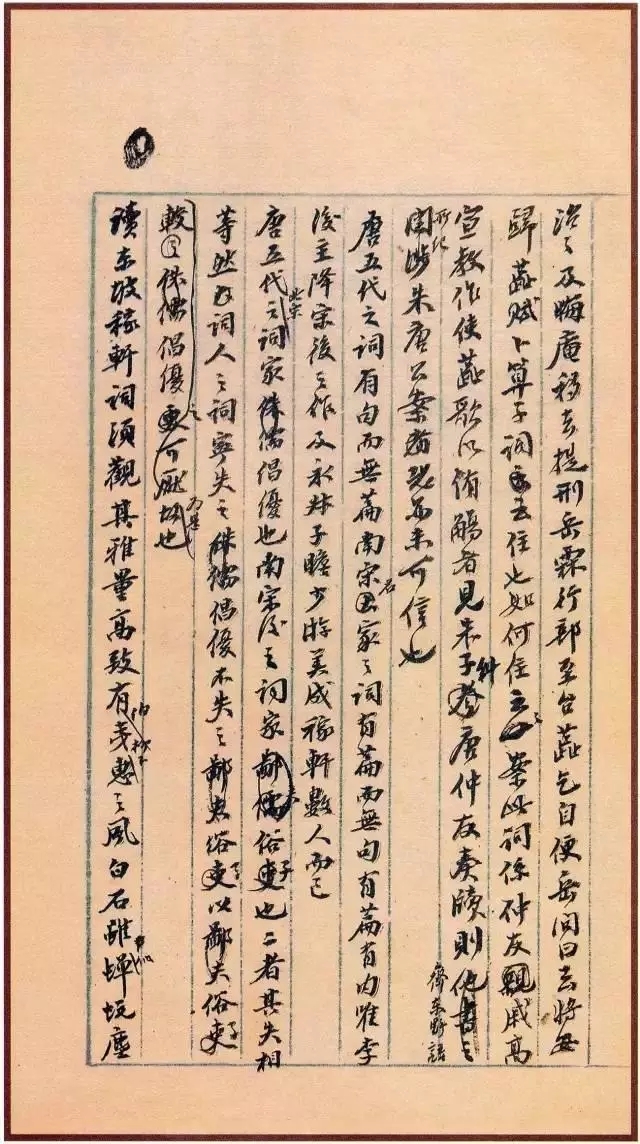 治之及晦庵移去提刑岳霖行部至台蕋乞自便岳問曰去將安
歸蕋賦卜算子詞云去住也如何住云云案此詞係仲友親戚高
宣教作使蕋歌以侑觴者見朱子糾唐仲友奏牘則他書齊東野語之
所紀
關涉朱唐公案者恐亦未可信也
唐五代之詞有句而無篇南宋名家之詞有篇而無句有篇有句唯李
後主降宋後之作及永叔子瞻少游美成稼軒數人而已
唐五代北宋之詞家侏儒倡優也南宋後之詞家鄙儒俗吏子也二者其失相
等然詞人之詞寧失之侏儒倡優不失之鄙夫俗吏子以鄙夫俗吏子
較侏儒倡優之更可厭故也
讀東坡稼軒詞須觀其雅量高致有伯夷柳下惠之風白石雖蟬蛻塵